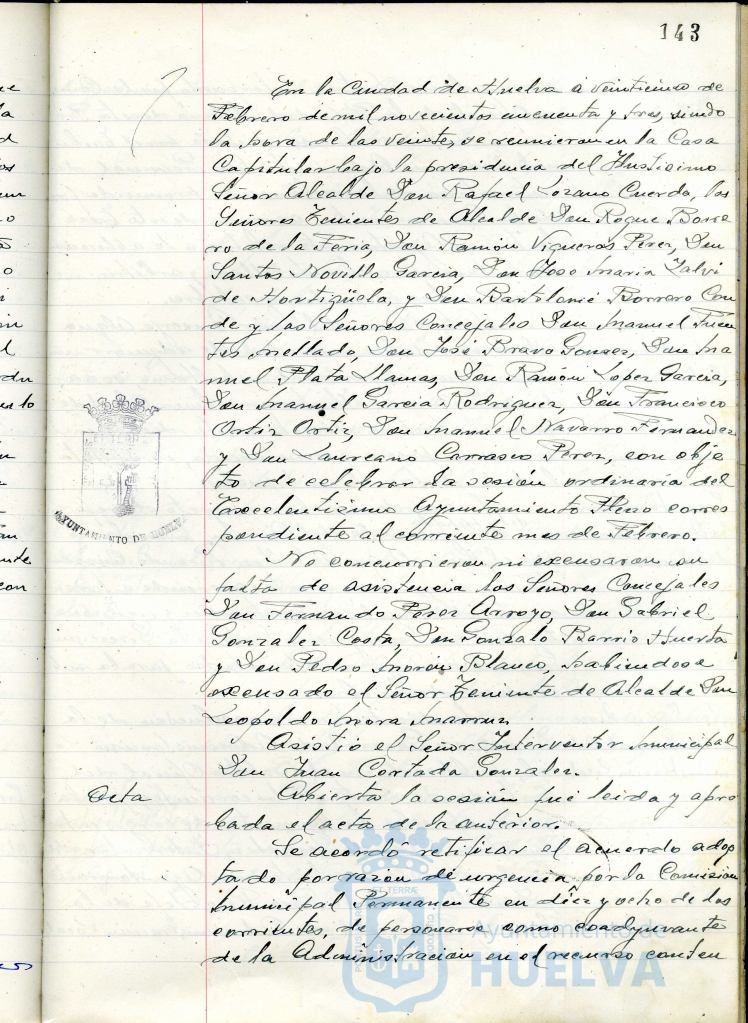 143
En la Ciudad de Huelva a veinticinco de
Febrero de mil novecientos cincuenta y tres, siendo
la hora de las veintes, se reunieron en la Casa
Capitular bajo la presidencia del Ilustrisimo
Señor Alcalde Don Rafael Lozano Cuerda, los
Señores Tenientes de Alcalde Don Roque Borre
ro de la Feria, Don Ramón Vigueras Pérez, Don
Santos Novillo Garcia, Don Jose Maria Zalvi
de Hortigüela, y Don Bartolomé Borrero Con
de y los Señores Concejales Don Manuel Fuen
tes Mellado, Don José Bravo Don Ma
nuel Plata Llamas, Don Ramón Lopez Garcia,
Don Manuel Garcia Rodriguez, Don Francisco
Ortiz Ortiz, Don Manuel Navarro Fernandez
y Don Laureano Carrasco Perez, con obje
to de celebrar la sesión ordinaria del
Excelentísimo Ayuntamiento Pleno corres
pondiente al corriente mes de Febrero.
No concurrieron ni excusaron su
falta de asistencia los Señores Concejales
Don Fernando Perez Arroyo, Don Gabriel
Gonzalez Costa, Don Gonzalo Barrio Huerta
y Don Pedro Morón Blanco, habiendose
excusado el Señor Teniente de Alcalde Don
Leopoldo Mora
Asistió el Señor Interventor Municipal
Don Juan Cortada Gonzalez.
Acta
Abierta la sesión fué leida y apro
bada el acta de la anterior.
Se acordó ratificar el acuerdo adop
tado por razon de urgencia por la Comisión
Municipal Permanente en diez y ocho de los
corrientes, de personarse como coadyuvante
de la Administracion en el recurso conten
AYUNTAMIENTO DE HUELVA
Ayuntamiento de
HUELVA